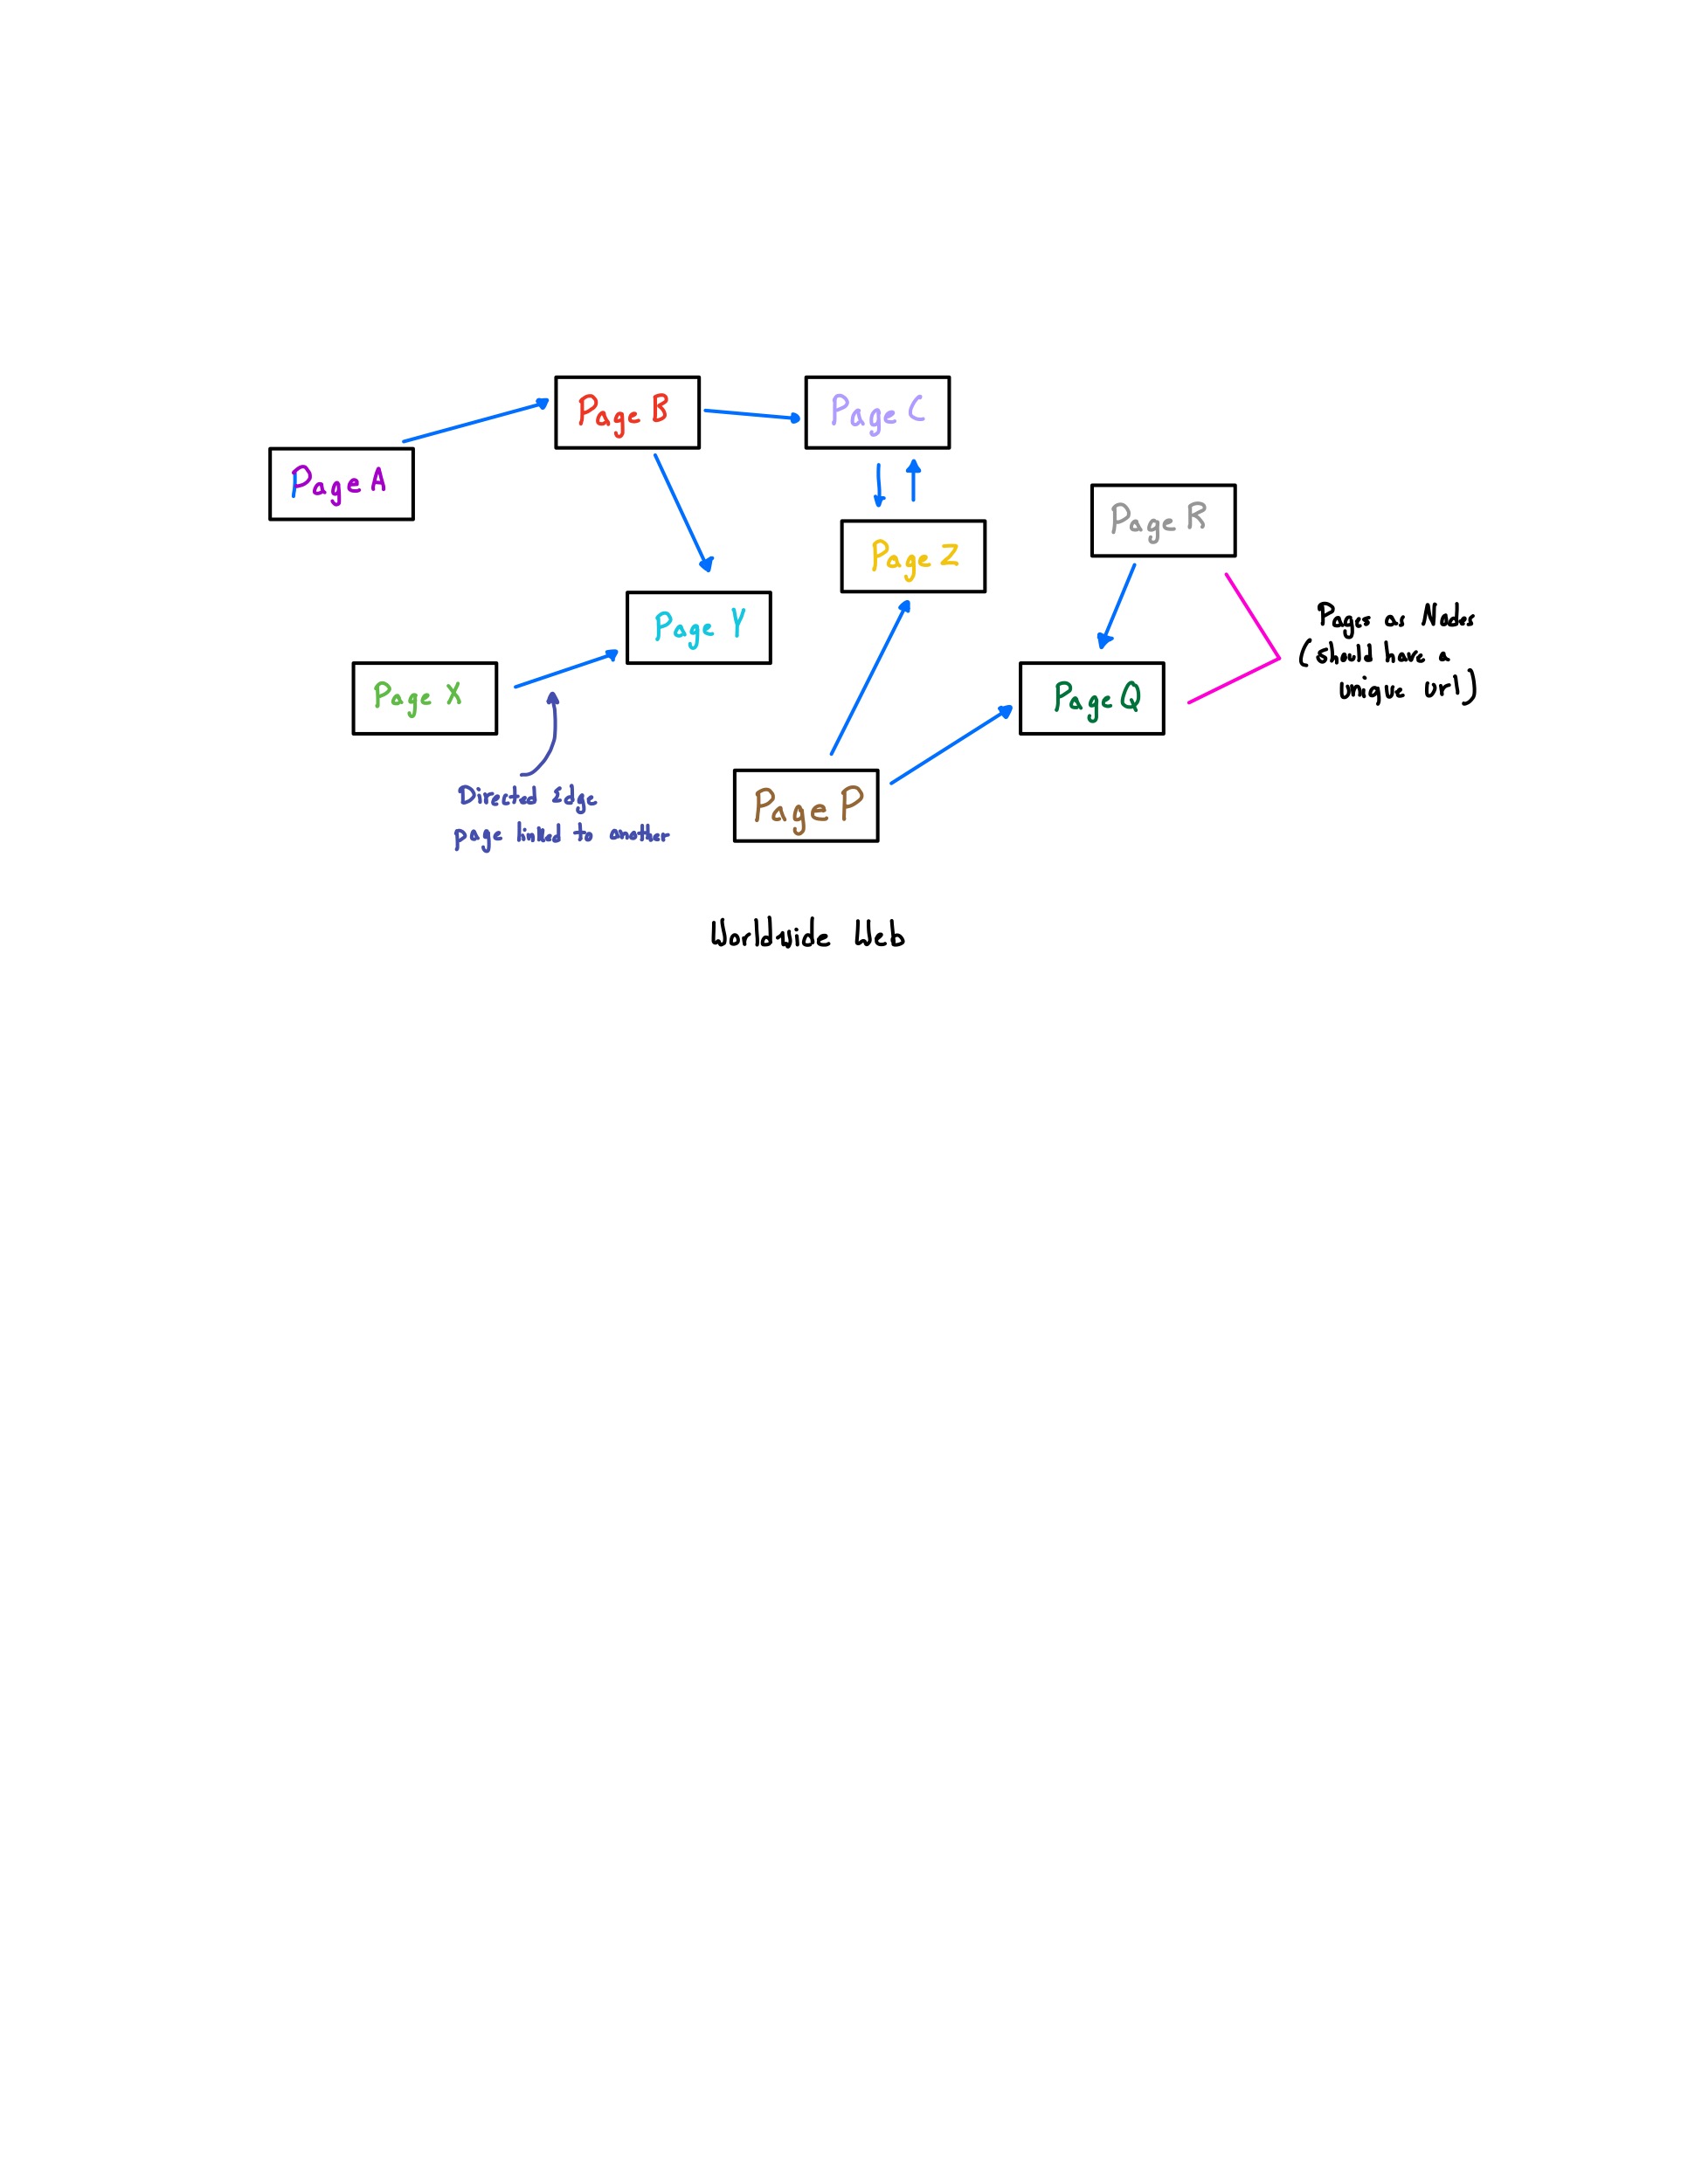 Page B
Page C
Page A
Page R
Page Z
Pages as Nodes
(should have a
unique url)
Page Y
Page X
Page Q
Directed Edge
page linked to another
Page P
Worldwide Web